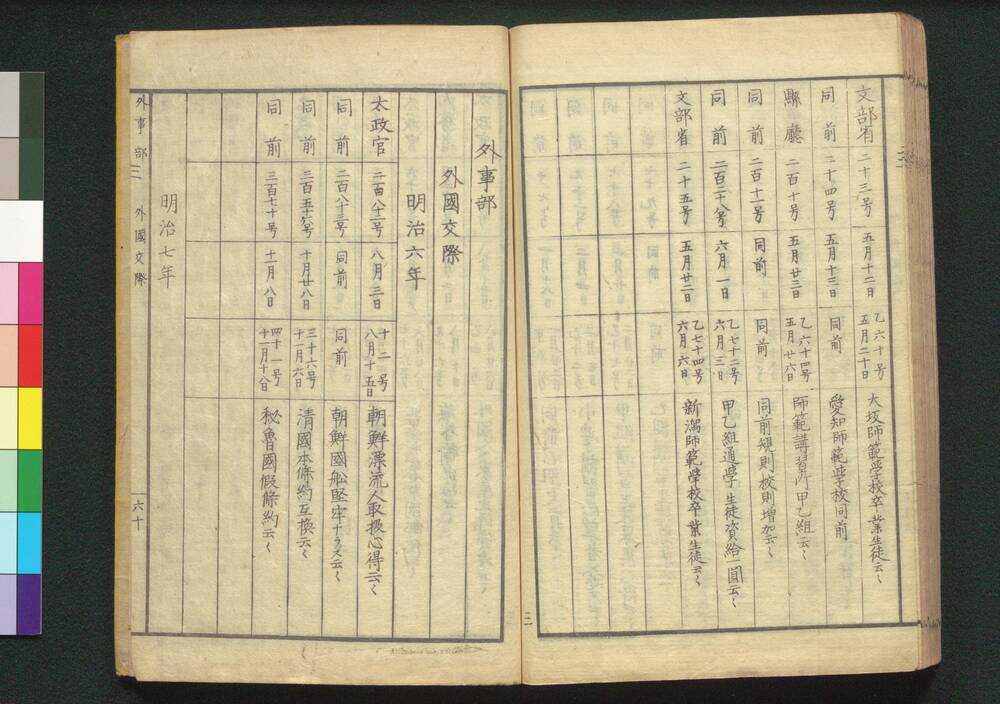 文部省 二十三号 五月十二日 乙六十号 五月二十日 大坂師範学校卒業生徒云〻
同前 二十四号 五月十三日 同前 愛知師範学校同前
縣廳 二百十号 五月廿三日 乙六十四号 五月廿六日 師範講習所甲乙組云〻
同前 二百十一号 同前 同前 同前規則校則増加云〻
同前 二百二十八号 六月一日 乙七十二号 六月三日 甲乙組通学生徒資給一圓云〻
文部省 二十五号 五月廿二日 乙七十四号 六月六日 新潟師範学校卒業生徒云〻
外事部
外國交際
明治六年
太政官 二百八十二号 八月三日 十二号 八月十五日 朝鮮漂流人取扱心得云〻
同前 二百八十三号 同前 同前 朝鮮國舩堅牢ナラス云〻
同前 三百五十六号 十月廿八日 三十六号 十一月六日 清國本條約互換云〻
同前 三百七十号 十一月八日 四十一号 十一月十八日 秘魯國假條約云〻
明治七年
外事部 三 外國交際 六十